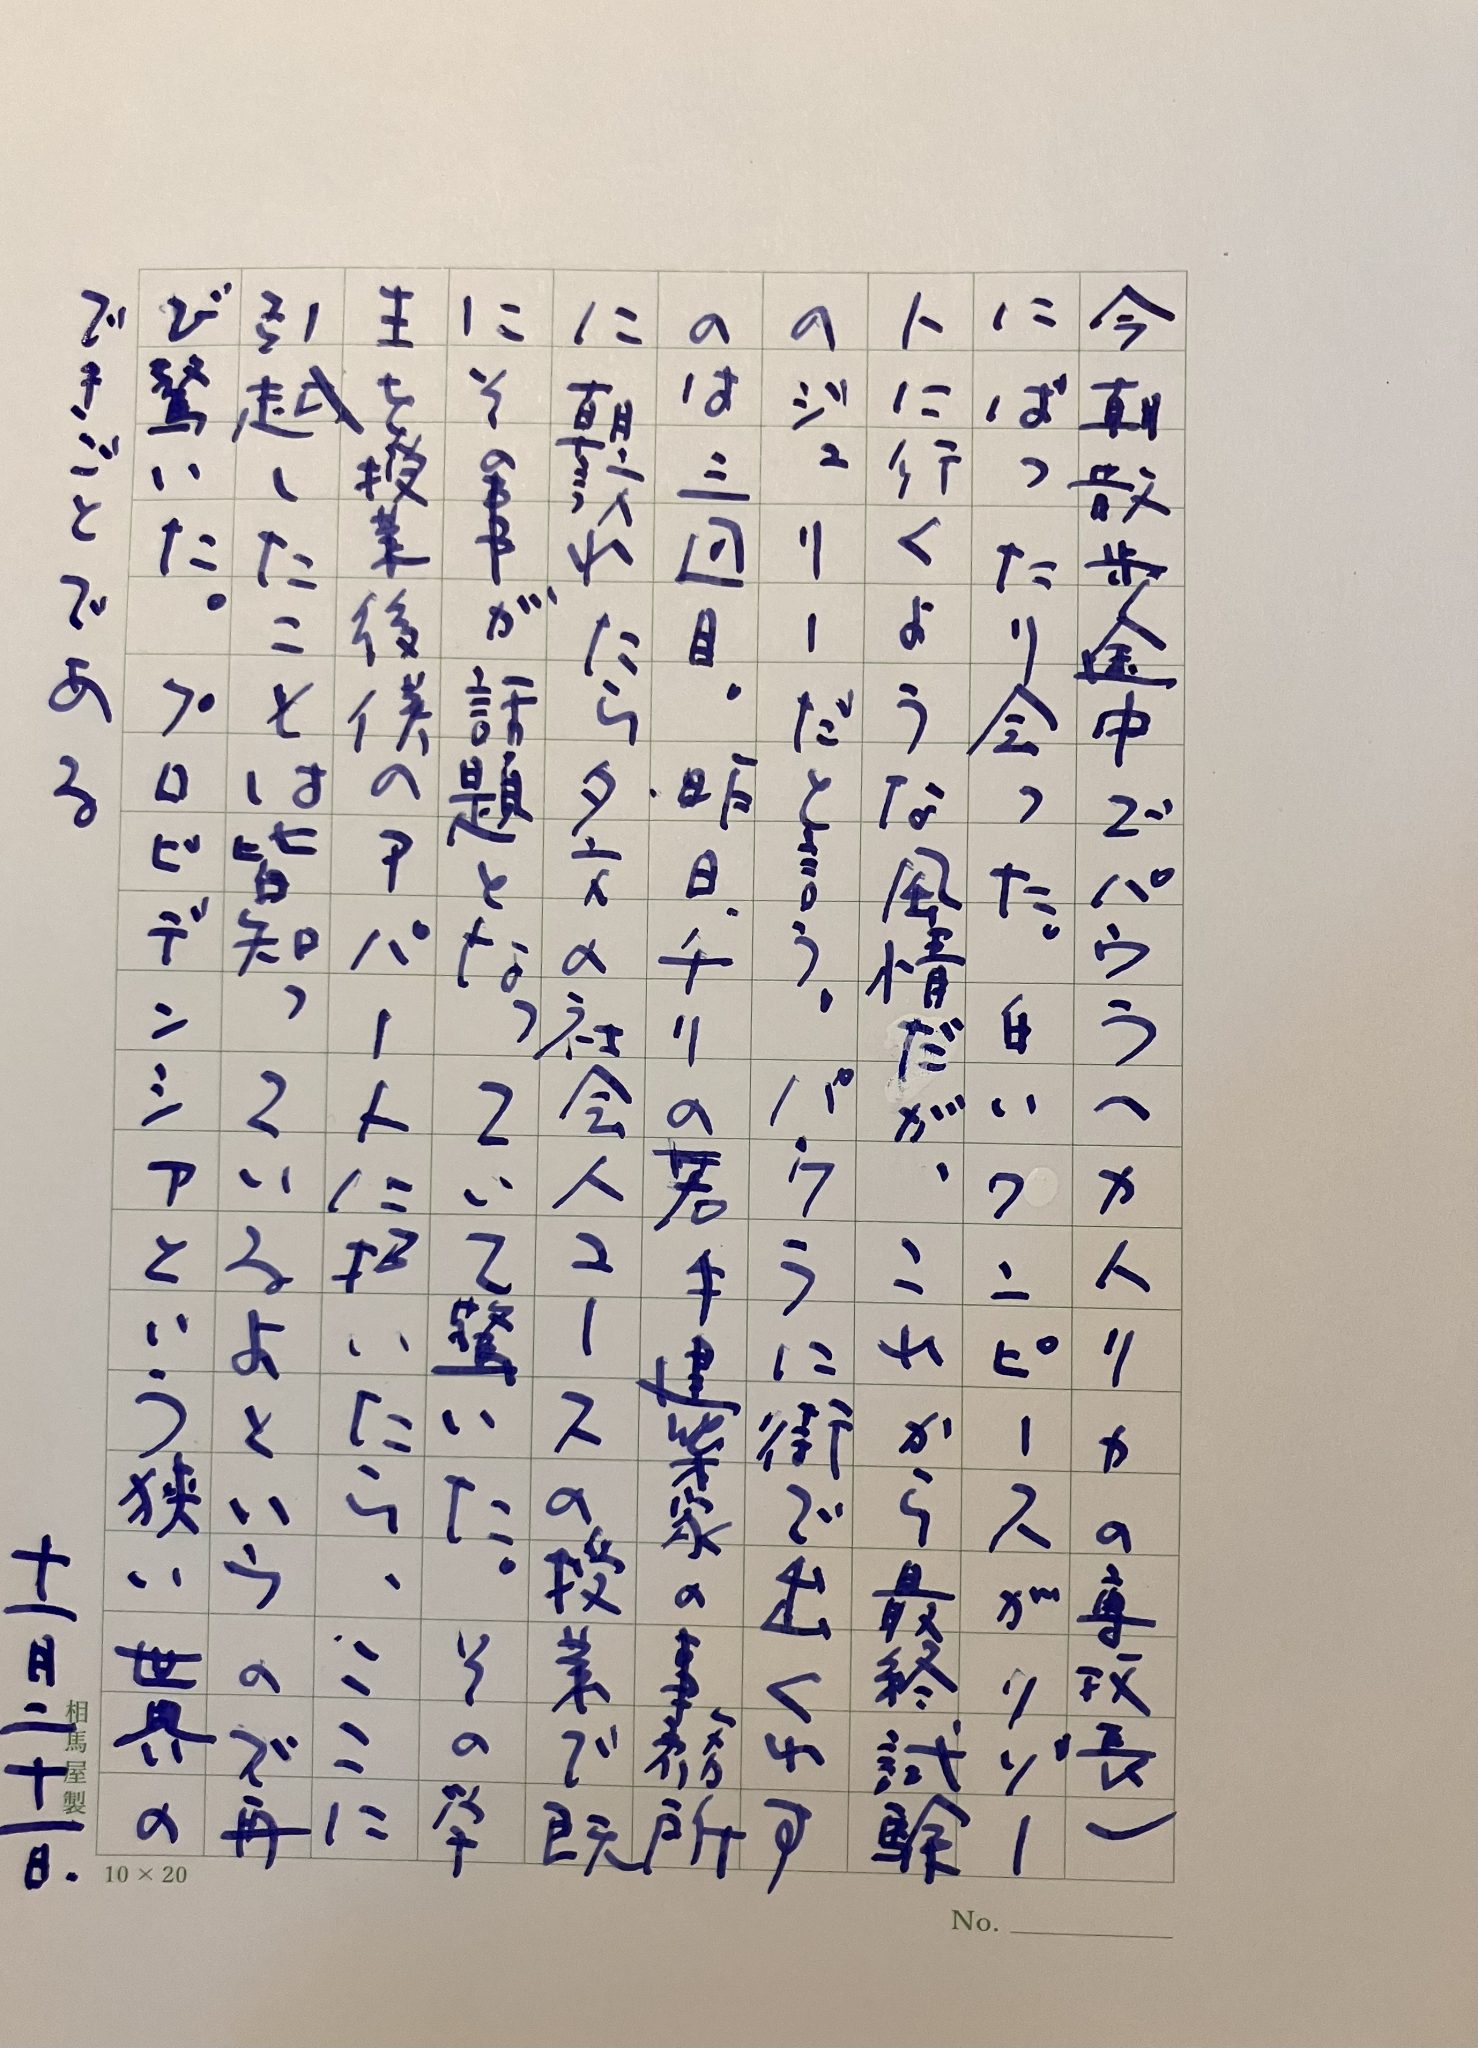 今朝散歩途中でパウラへメ人リカの専攻長一
にばったり会った。白いワンピースがリゾー
トに行くような風情だが、これから最終試験
のジュリーだと言う。パウラに街で出くわす
のは三回目。昨日、チリの若手建築家の事務所
に訪れたら夕方の社会人コースの授業で既
にその事が話題となっていて驚いた。その学
生を授業後僕のアパートに招いたら、ここに
引起したことは皆知っているよというので再
び驚いた。プロビデンシアという狭い世界の
できごとである
十一月二十一日.
相馬屋製
10 × 20
No.